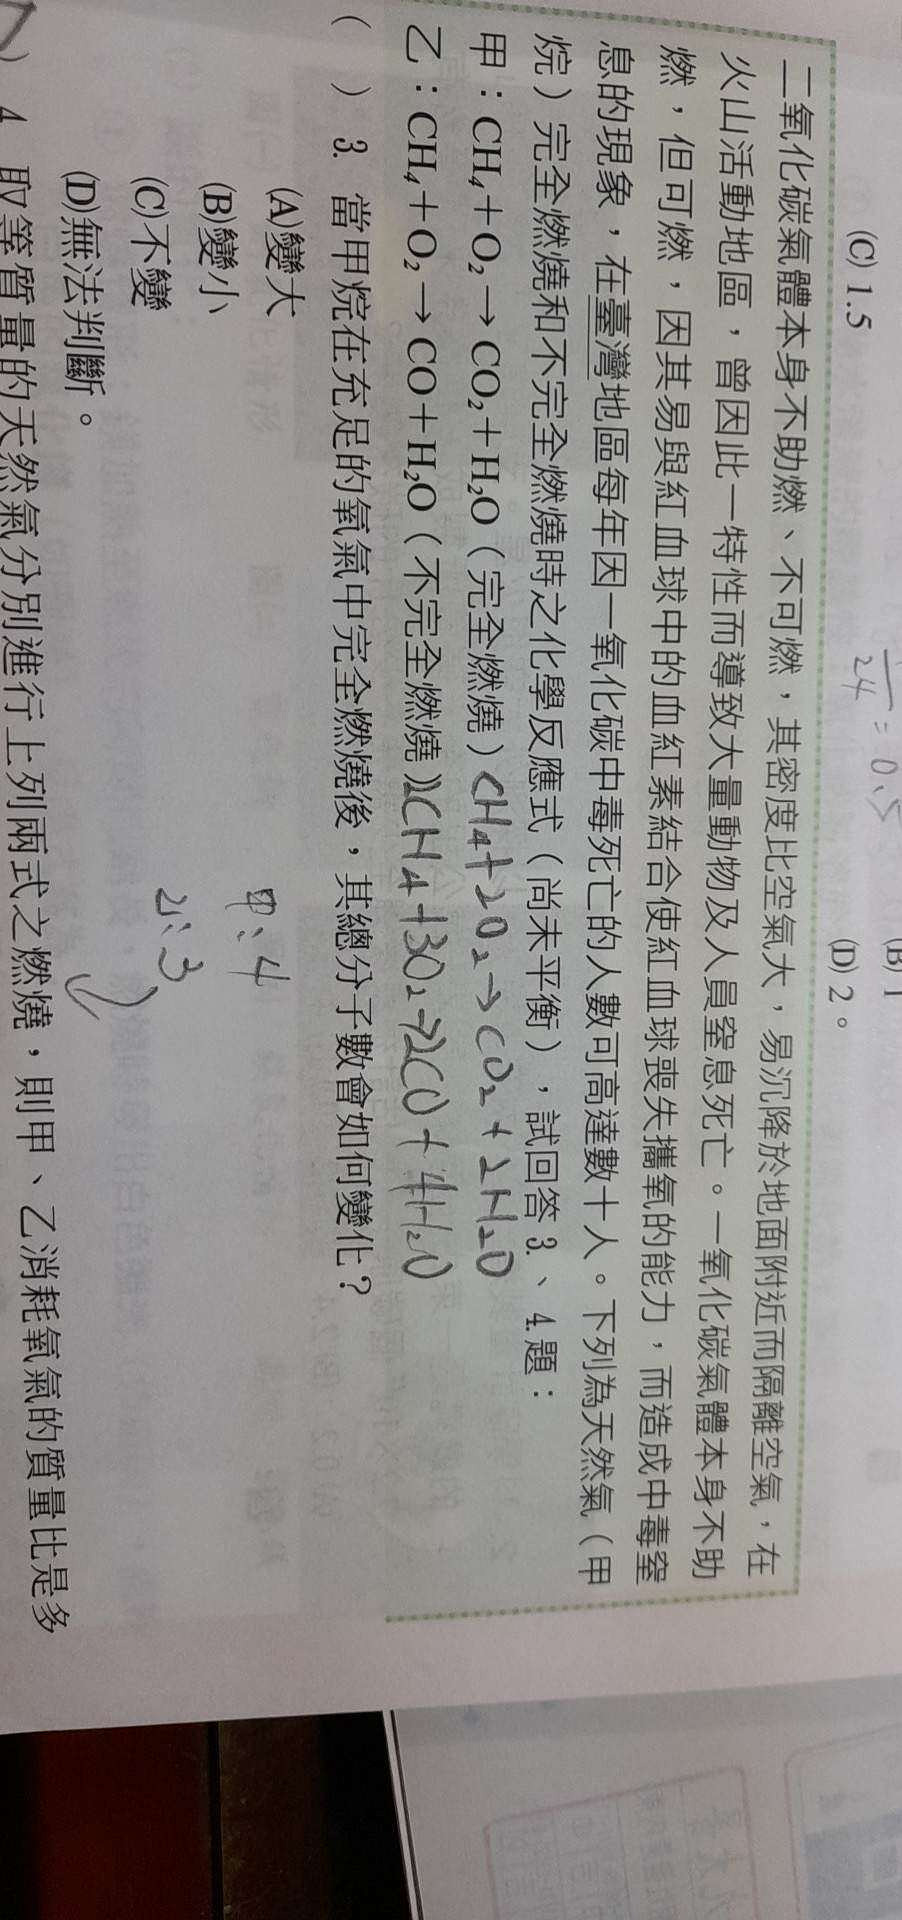 24 = 0.5
(B) 1
(C) 1.5
(D) 2。
二氧化碳氣體本身不助燃、不可燃，其密度比空氣大，易沉降於地面附近而隔離空氣，在
火山活動地區，曾因此一特性而導致大量動物及人員窒息死亡。一氧化碳氣體本身不助
燃，但可燃，因其易與紅血球中的血紅素結合使紅血球喪失攜氧的能力，而造成中毒窒
息的現象，在臺灣地區每年因一氧化碳中毒死亡的人數可高達數十人。下列為天然氣（甲
烷）完全燃燒和不完全燃燒時之化學反應式（尚未平衡），試回答 3.、4.題：
甲：CH₄＋O₂→CO₂＋H₂O（完全燃燒）CH₄+2O₂→CO₂+2H₂O
乙：CH₄＋O₂→CO＋H₂O（不完全燃燒）2CH₄+3O₂→2CO+4H₂O
（ ）3. 當甲烷在充足的氧氣中完全燃燒後，其總分子數會如何變化？
(A)變大
(B)變小
(C)不變
(D)無法判斷。
甲:4
乙:3
）4. 取等質量的天然氣分別進行上列兩式之燃燒，則甲、乙消耗氧氣的質量比是多